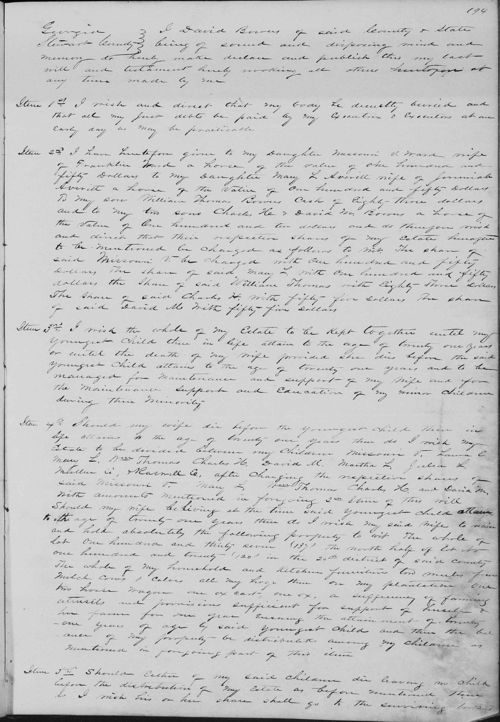 194
Georgia } I David Bowers of said County & State
Stewart County } being of sound and disposing mind and
memory do hereby make declare and publish this my last
will and testament hereby revoking all others heretofore at
any time made by me
Item 1st I wish and direct that my body be decently buried and
that all my just debts be paid by my Executrix & Executors at an
early day as may be practicable
Item 2nd I have heretofore given to my Daughter Missouri V Ward wife
of Franklin Ward a horse of the value of one hundred and
fifty Dollars to my Daughter Mary L Averitt wife of Jeremiah
Averitt a horse of the value of One hundred and fifty Dollars
To my son William Thomas Bowers Cash of Eighty three dollars
and to my two sons Charles H & David M Bowers a horse of
the value of One hundred and ten dollars and do therefore wish
and direct that their respective shares of my Estate hereafter
to be mentioned be charged as follows to wit The share of
said Missouri V be charged with One hundred and fifty
dollars the share of said Mary L with One hundred and fifty
dollars the share of said William Thomas with Eighty three dollars
The share of said Charles H with fifty five dollars The share
of said David M with fifty five dollars
Item 3rd I wish the whole of my Estate to be kept together until my
youngest child then in life attain to the age of twenty one years
or until the death of my wife provided she dies before the said
youngest child attains to the age of twenty one years and to be
managed for maintenance and support of my wife and for
the maintenance support and Education of my minor children
during their minority
Item 4th Should my wife die before the youngest child then in
life attains to the age of twenty one years then do I wish my
Estate to be divided between my children Missouri V,
Mary L, Wm Thomas Charles H, David M, Martha L,
after charging the respective shares of
said Missouri V Mary L Wm Thomas Charles H, and David M,
with amounts mentioned in foregoing 2nd Item of this will
Should my wife be living at the time said youngest child attain
to the age of twenty-one years then do I wish my said wife to retain
and hold absolutely the following property to wit The whole of
Lot One hundred and thirty seven (137) The north half of lot No
one hundred and twenty in the district of said county
The whole of my household and kitchen furniture two mules five
Milch Cows & Calves all my hogs then on my plantation One
two horse wagon one ox cart, one ox, a sufficiency of farming
utensils and provisions sufficient for support of herself &
her farm for one year Ensuing the attainment of twenty
-one years of age by said youngest child and then the bal
ance of my property be distributed among my children as
mentioned in foregoing part of this item
Item 5th Should Either of my said children die leaving no child
before the distribution of my Estate as before mentioned then
do I wish his or her share shall go to the surviving